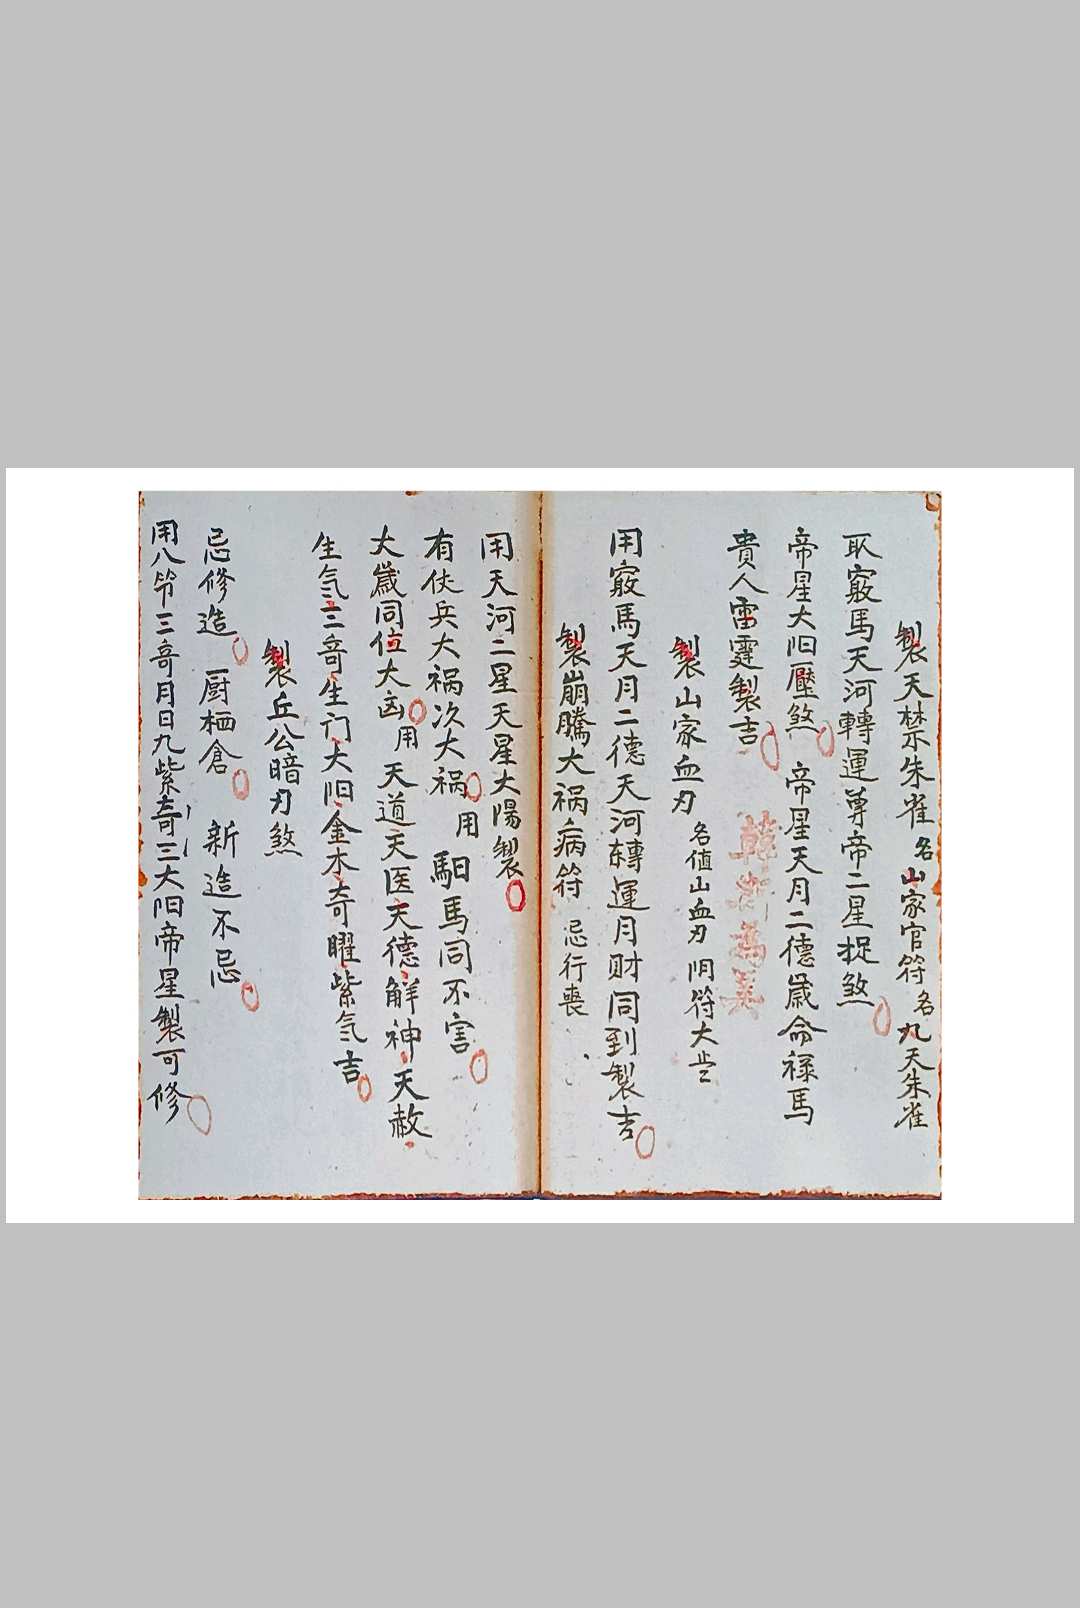 製天禁朱雀 名山家官符 名九天朱雀
取竅馬天河轉運尊帝二星捉煞
帝星太阳壓煞 帝星天月二德歲命祿馬
貴人雷霆製吉
製山家血刃 名值山血刃 阴符大
用竅馬天月二德天河轉運月财同到製吉
製崩騰大祸病符 忌行喪
用天河二星天星太陽製
有伏兵大祸次大祸 用 馹馬同不害
大歲同值大凶 用 天道天医天德解神天赦
生气三奇生门太阳金水奇曜紫气吉
製丘公暗刃煞
忌修造 厨栖倉 新造不忌
用八节三奇月日九紫奇三太阳帝星製可修